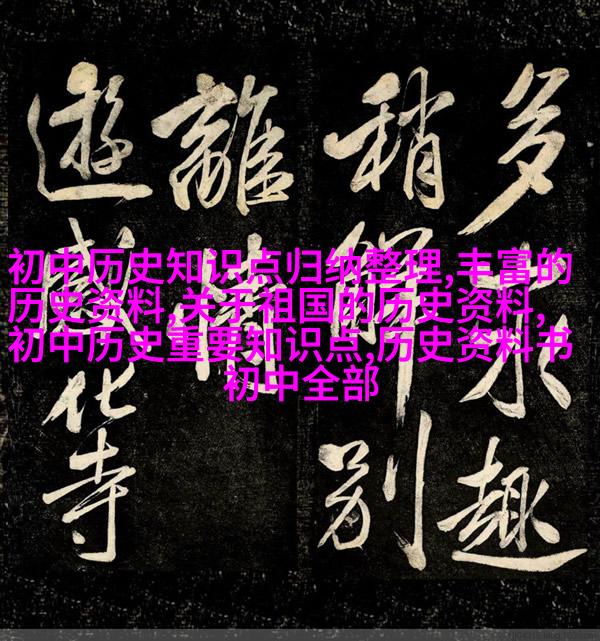 初中历史知识点归纳整理,丰富的
历史资料,关于祖国的历史资料,
初中历史重要知识点,历史资料书
初中全部
多求趣
稍解別
離情
遊感化寺